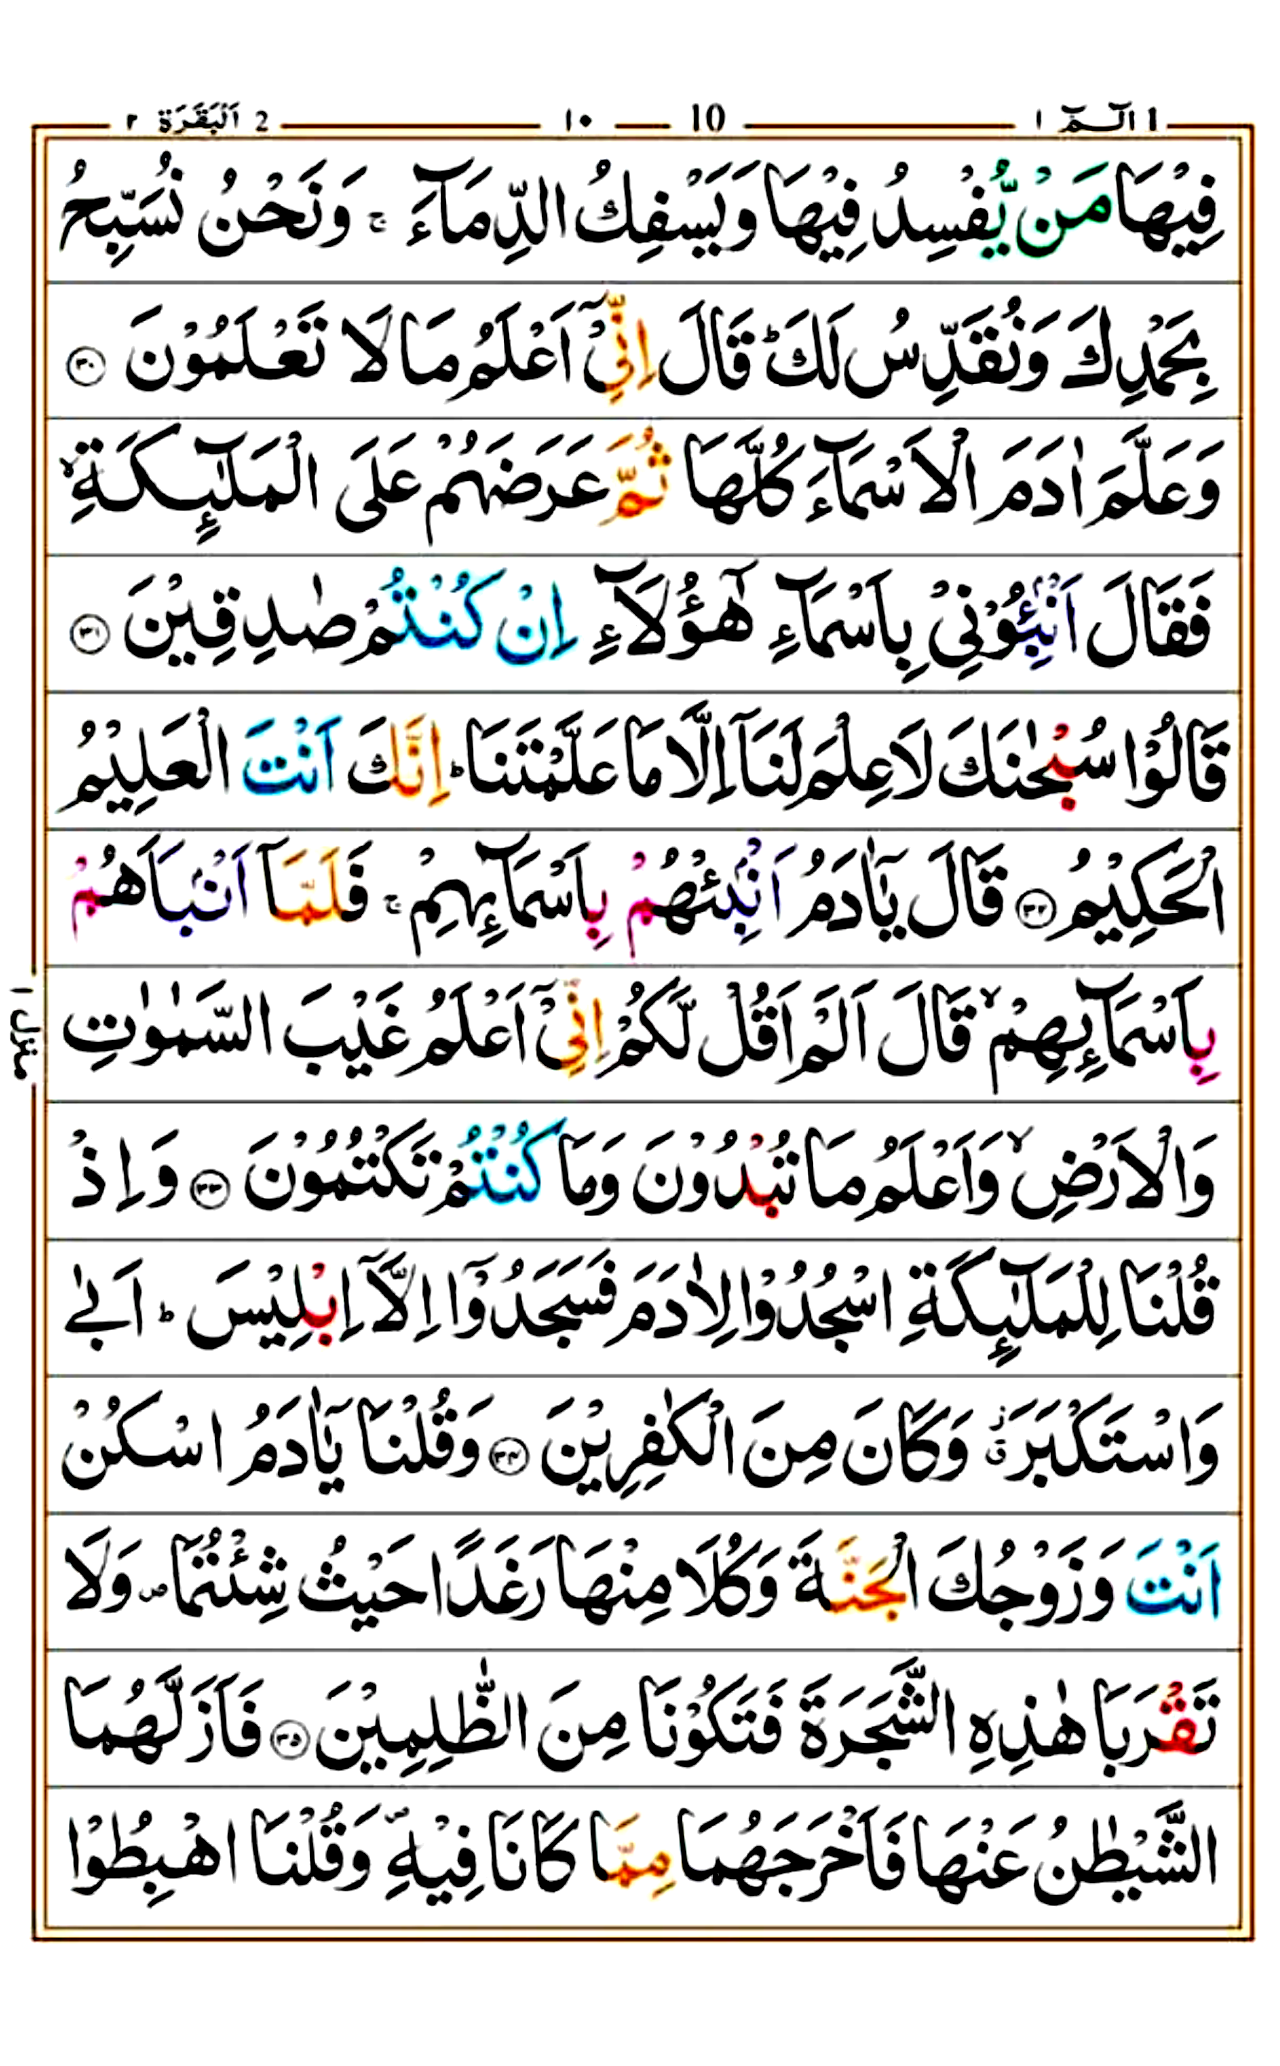 1 الٓـمّٓ ١ 10 ١٠ 2 اَلْبَقَرَة ٢
فِيْهَا مَنْ يُّفْسِدُ فِيْهَا وَيَسْفِكُ الدِّمَآءَ ۚ وَنَحْنُ نُسَبِّحُ
بِحَمْدِكَ وَنُقَدِّسُ لَكَ ؕ قَالَ اِنِّيْٓ اَعْلَمُ مَا لَا تَعْلَمُوْنَ ۝۳۰
وَعَلَّمَ اٰدَمَ الْاَسْمَآءَ كُلَّهَا ثُمَّ عَرَضَهُمْ عَلَى الْمَلٰٓئِكَةِ ۙ
فَقَالَ اَنْۢبِـُٔوْنِيْ بِاَسْمَآءِ هٰٓؤُلَآءِ اِنْ كُنْتُمْ صٰدِقِيْنَ ۝۳۱
قَالُوْا سُبْحٰنَكَ لَا عِلْمَ لَنَآ اِلَّا مَا عَلَّمْتَنَا ؕ اِنَّكَ اَنْتَ الْعَلِيْمُ
الْحَكِيْمُ ۝۳۲ قَالَ يٰٓاٰدَمُ اَنْۢبِئْهُمْ بِاَسْمَآئِهِمْ ۚ فَلَمَّآ اَنْۢبَاَهُمْ
بِاَسْمَآئِهِمْ ۙ قَالَ اَلَمْ اَقُلْ لَّكُمْ اِنِّيْٓ اَعْلَمُ غَيْبَ السَّمٰوٰتِ
وَالْاَرْضِ ۙ وَاَعْلَمُ مَا تُبْدُوْنَ وَمَا كُنْتُمْ تَكْتُمُوْنَ ۝۳۳ وَاِذْ
قُلْنَا لِلْمَلٰٓئِكَةِ اسْجُدُوْا لِاٰدَمَ فَسَجَدُوْٓا اِلَّآ اِبْلِيْسَ ؕ اَبٰى
وَاسْتَكْبَرَ ۫ۗ وَكَانَ مِنَ الْكٰفِرِيْنَ ۝۳۴ وَقُلْنَا يٰٓاٰدَمُ اسْكُنْ
اَنْتَ وَزَوْجُكَ الْجَنَّةَ وَكُلَا مِنْهَا رَغَدًا حَيْثُ شِئْتُمَا ۪ وَلَا
تَقْرَبَا هٰذِهِ الشَّجَرَةَ فَتَكُوْنَا مِنَ الظّٰلِمِيْنَ ۝۳۵ فَاَزَلَّهُمَا
الشَّيْطٰنُ عَنْهَا فَاَخْرَجَهُمَا مِمَّا كَانَا فِيْهِ ۪ وَقُلْنَا اهْبِطُوْا
منزل ١